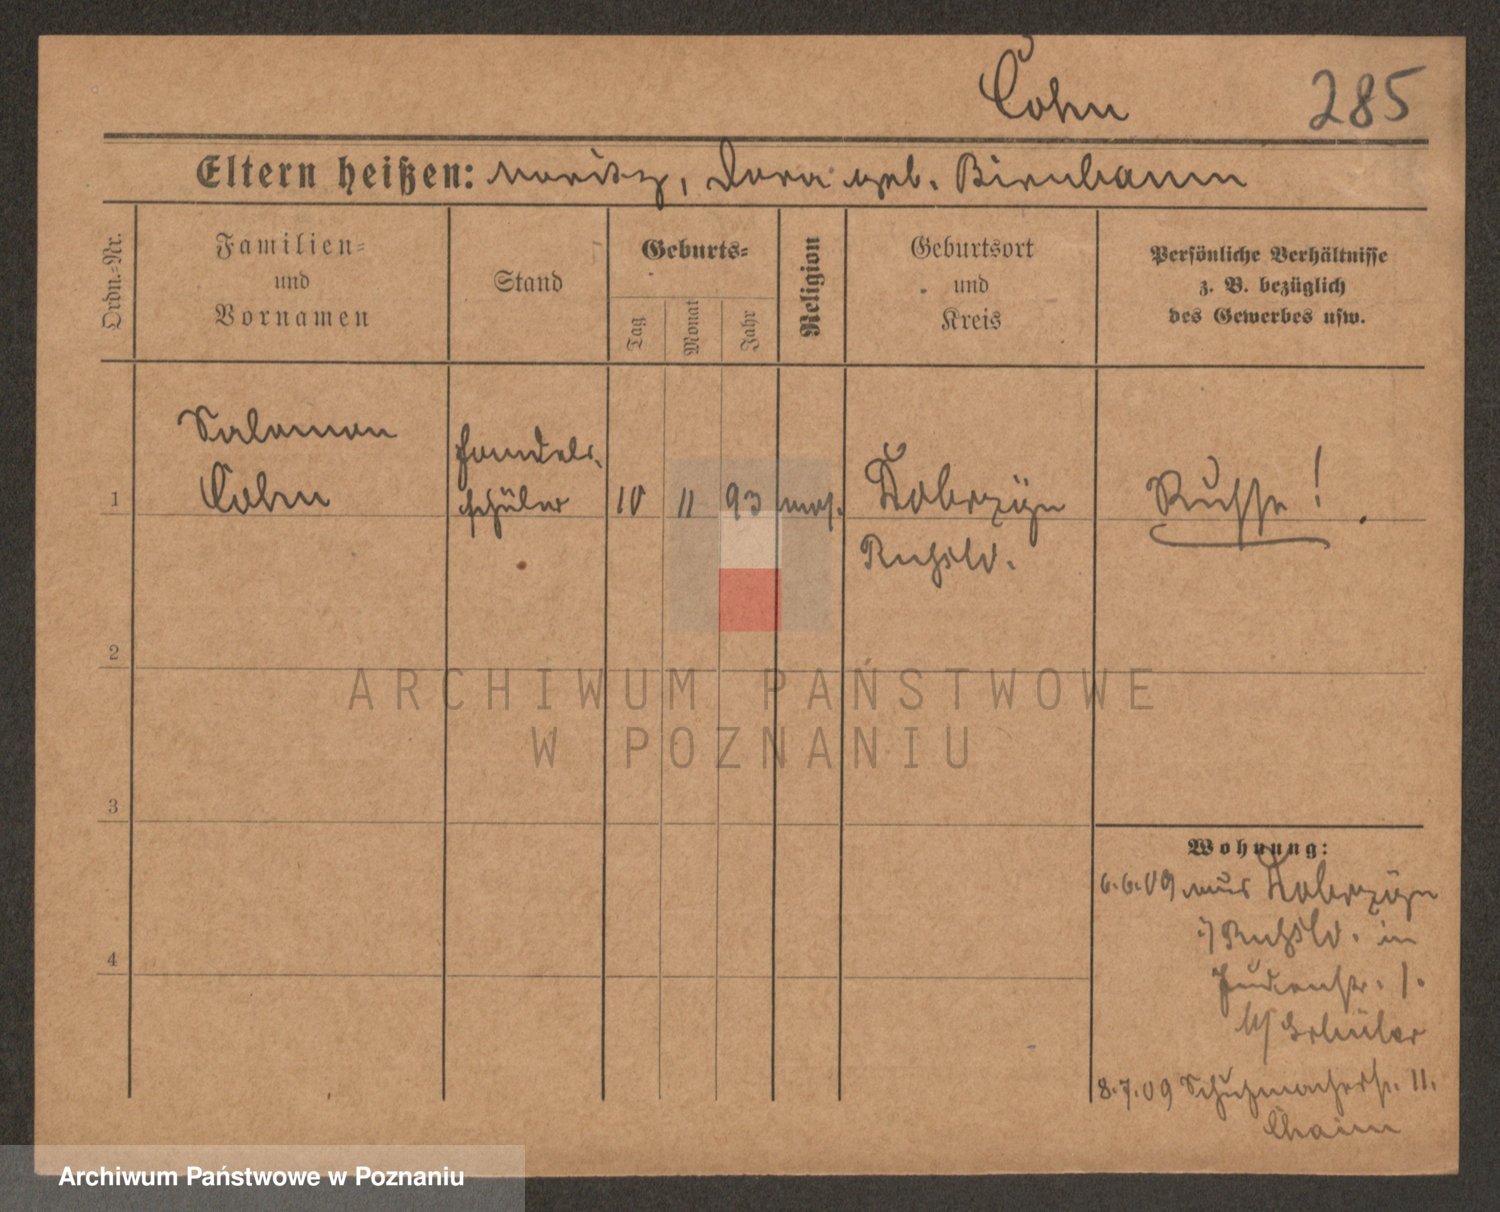 Cohn 285
Eltern heißen: Moritz, Dora geb. Birnbaum
Ordn.-Nr.
Familien-
und
Vornamen
Stand
Geburts-
Tag
Monat
Jahr
Religion
Geburtsort
und
Kreis
Persönliche Verhältnisse
z. B. bezüglich
des Gewerbes usw.
1
Salomon
Cohn
Handels-
schüler
10
11
93
mos.
Dobrzÿn
Rußld.
Russe!
2
3
4
Wohnung:
6.6.09 aus Dobrzÿn
i/Rußld. in
Judenstr. 1.
b/ Schüler
8.7.09 Schuhmacherstr. 11.
Chaim
ARCHIWUM PAŃSTWOWE
W POZNANIU
Archiwum Państwowe w Poznaniu